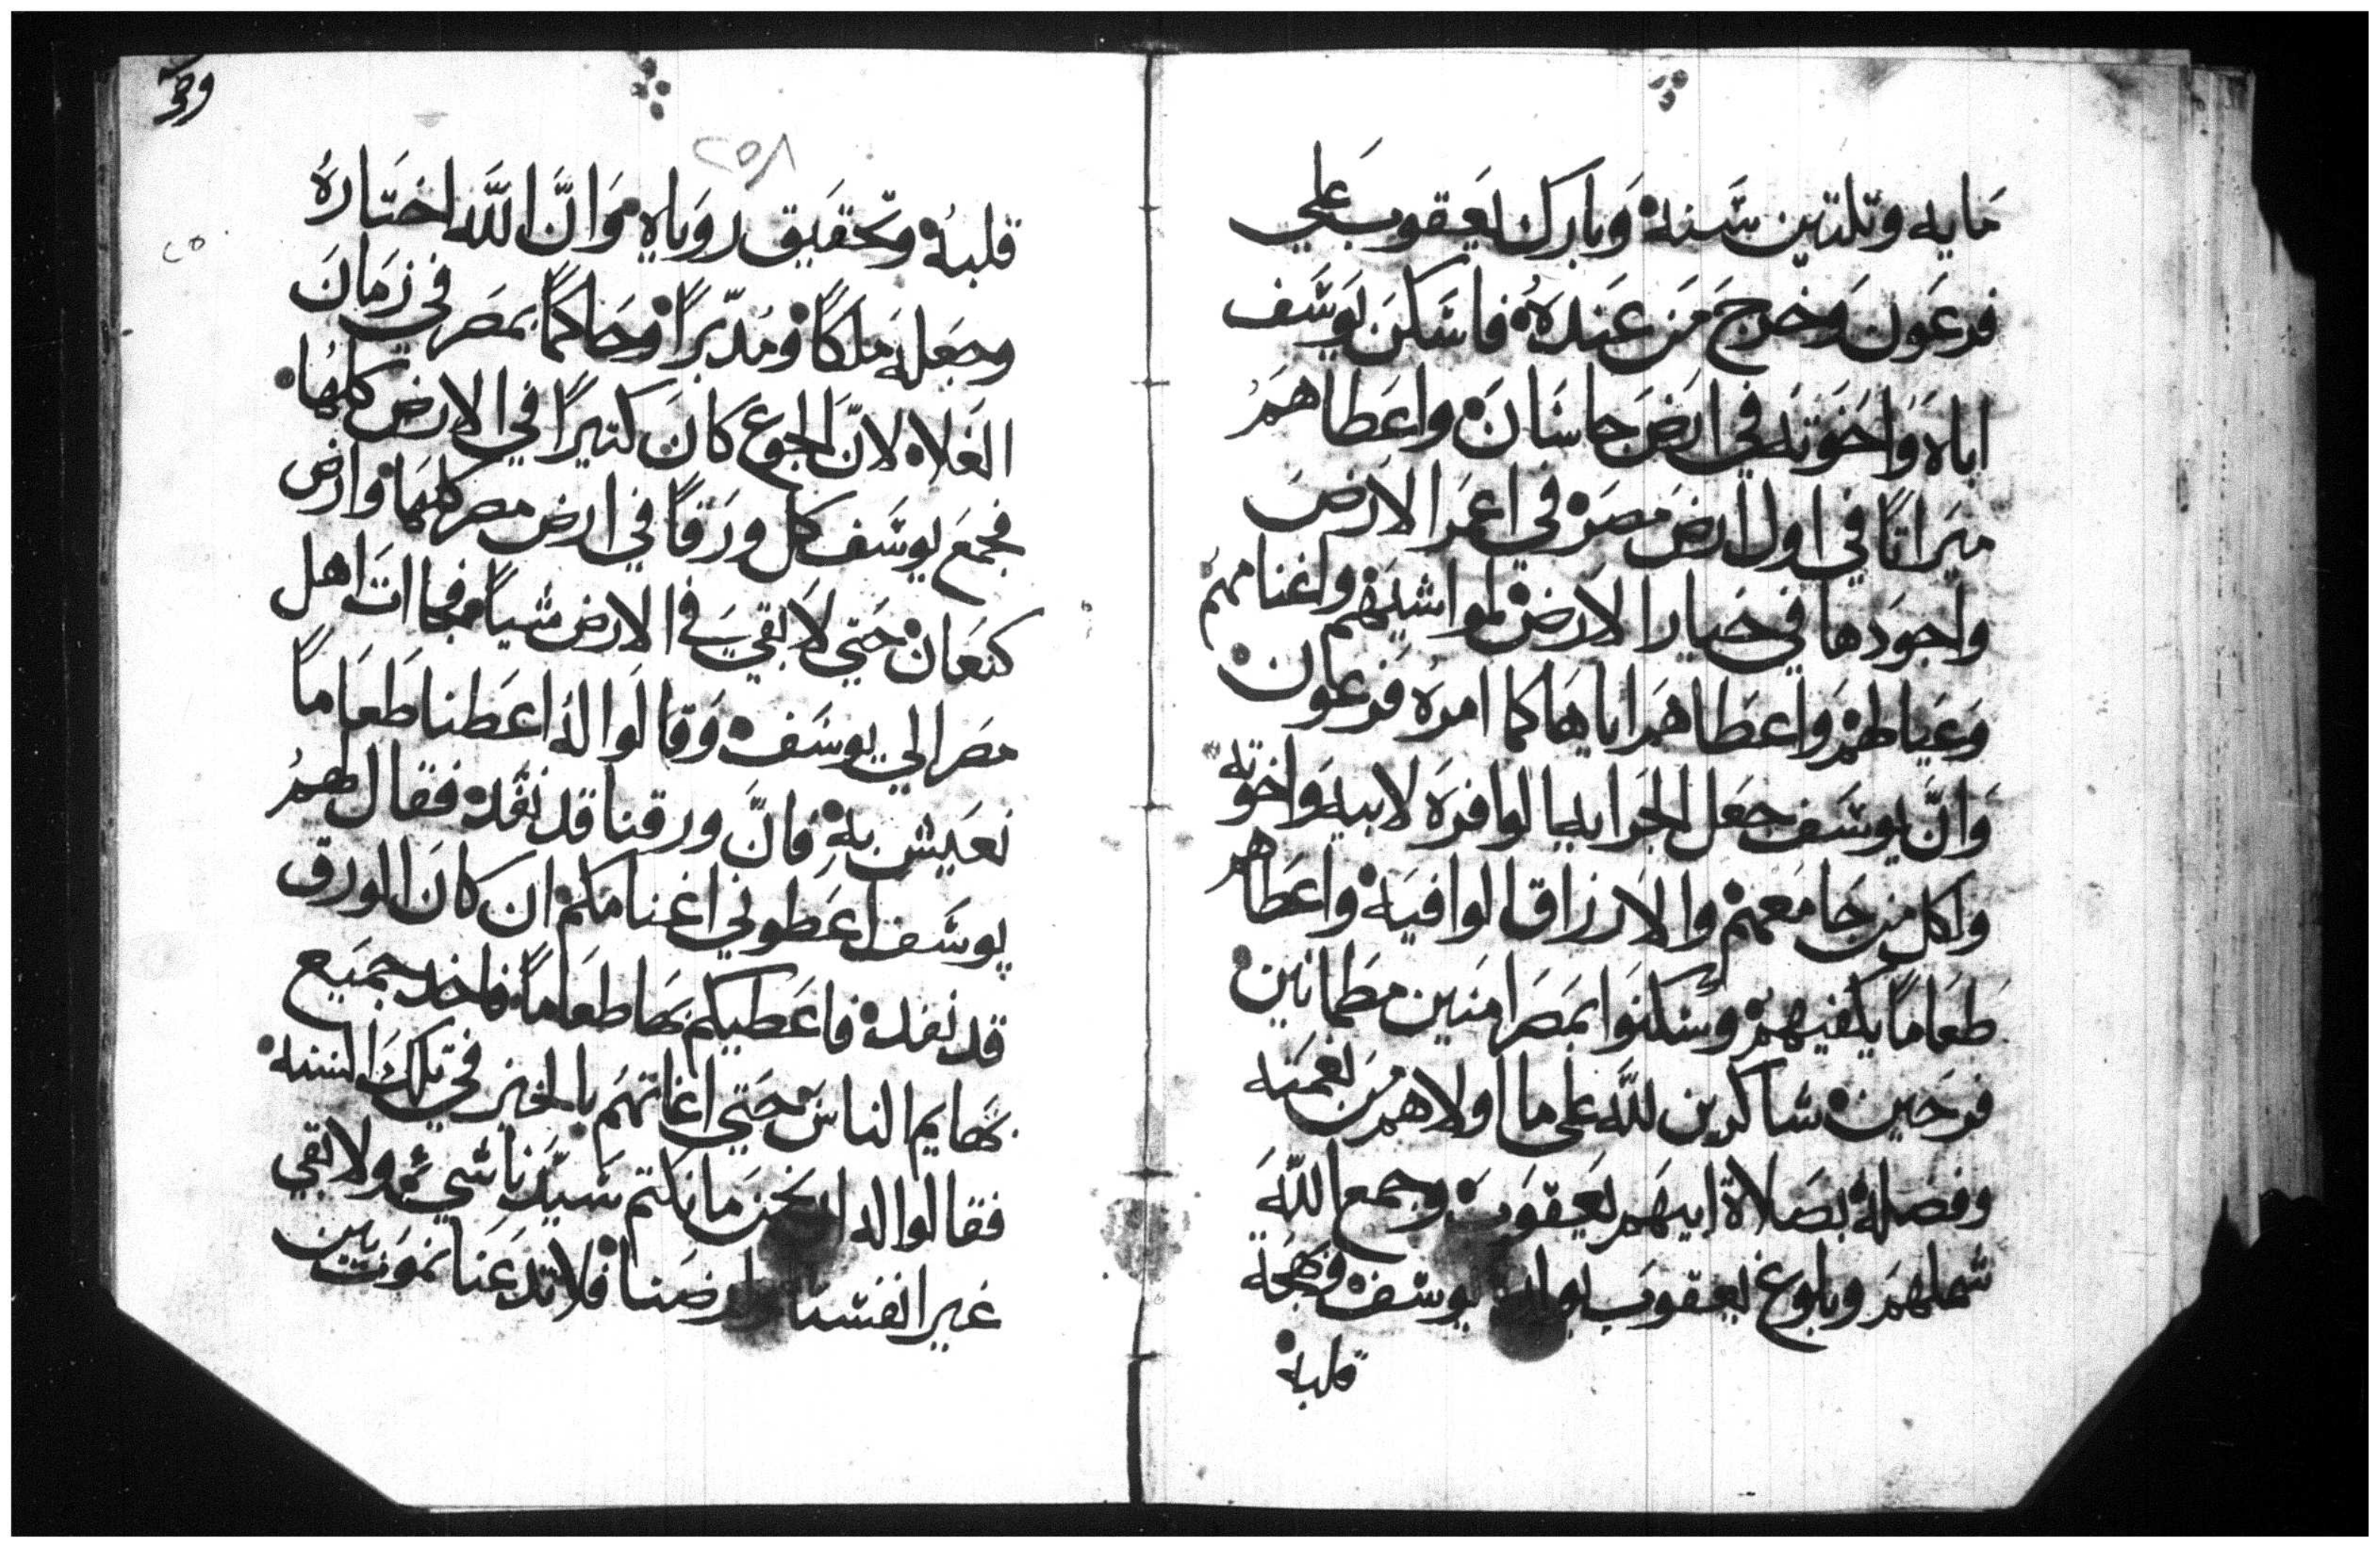 مايه وتلتين سنة وبارك يعقوب علي
فرعون وخرج من عنده فاسكن يوسف
اباه واخوته في ارض جاسان واعطاهم
ميراتًا في اول ارض مصر في اعمر الارض
واجودها في خيار الارض لمواشيهم واغنامهم
وعيالهم واعطاهم اياها كما امره فرعون
وانّ يوسف جعل الجرايه الوافره لابيه واخوته
ولكل من جا معهم والارزاق الوافيه واعطاهم
طعامًا يكفيهم وسكنوا بمصر امنين مطمانين
فرحين شاكرين للّه على ما اولاهم من نعمته
وفضله بصلاة ابيهم يعقوب وجمع اللّه
شملهم وبلوغ يعقوب يوسف وبهجة
قلبه
٢٥٨
قلبه وتحقيق روياه وانّ اللّه اختاره
وجعله ملكًا ومدبّرًا وحاكمًا بمصر في زمان
الغلاء لانّ الجوع كان كتيرًا في الارض كلها
فجمع يوسف كل ورقًا في ارض مصر كلها وارض
كنعان حتي لا بقي في الارض شياً فجاات اهل
مصر الي يوسف وقالوا له اعطنا طعامًا
نعيش به فانّ ورقنا قد نفد فقال لهم
يوسف اعطوني اغنامكم ان كان الورق
قد نفد فاعطيكم بها طعامًا فاخد جميع
بهايم الناس حتي اغاتهم بالخبز في تلك السنه
فقالوا له نحن ما نكتم سيّدنا شيء ولا بقي
غير انفسنا وارضنا فلا تدعنا نموت بين